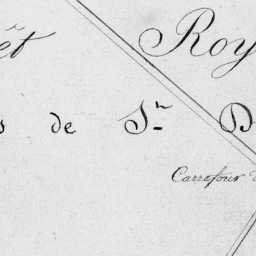 êt Roy
s de Sn D
Carrefour d